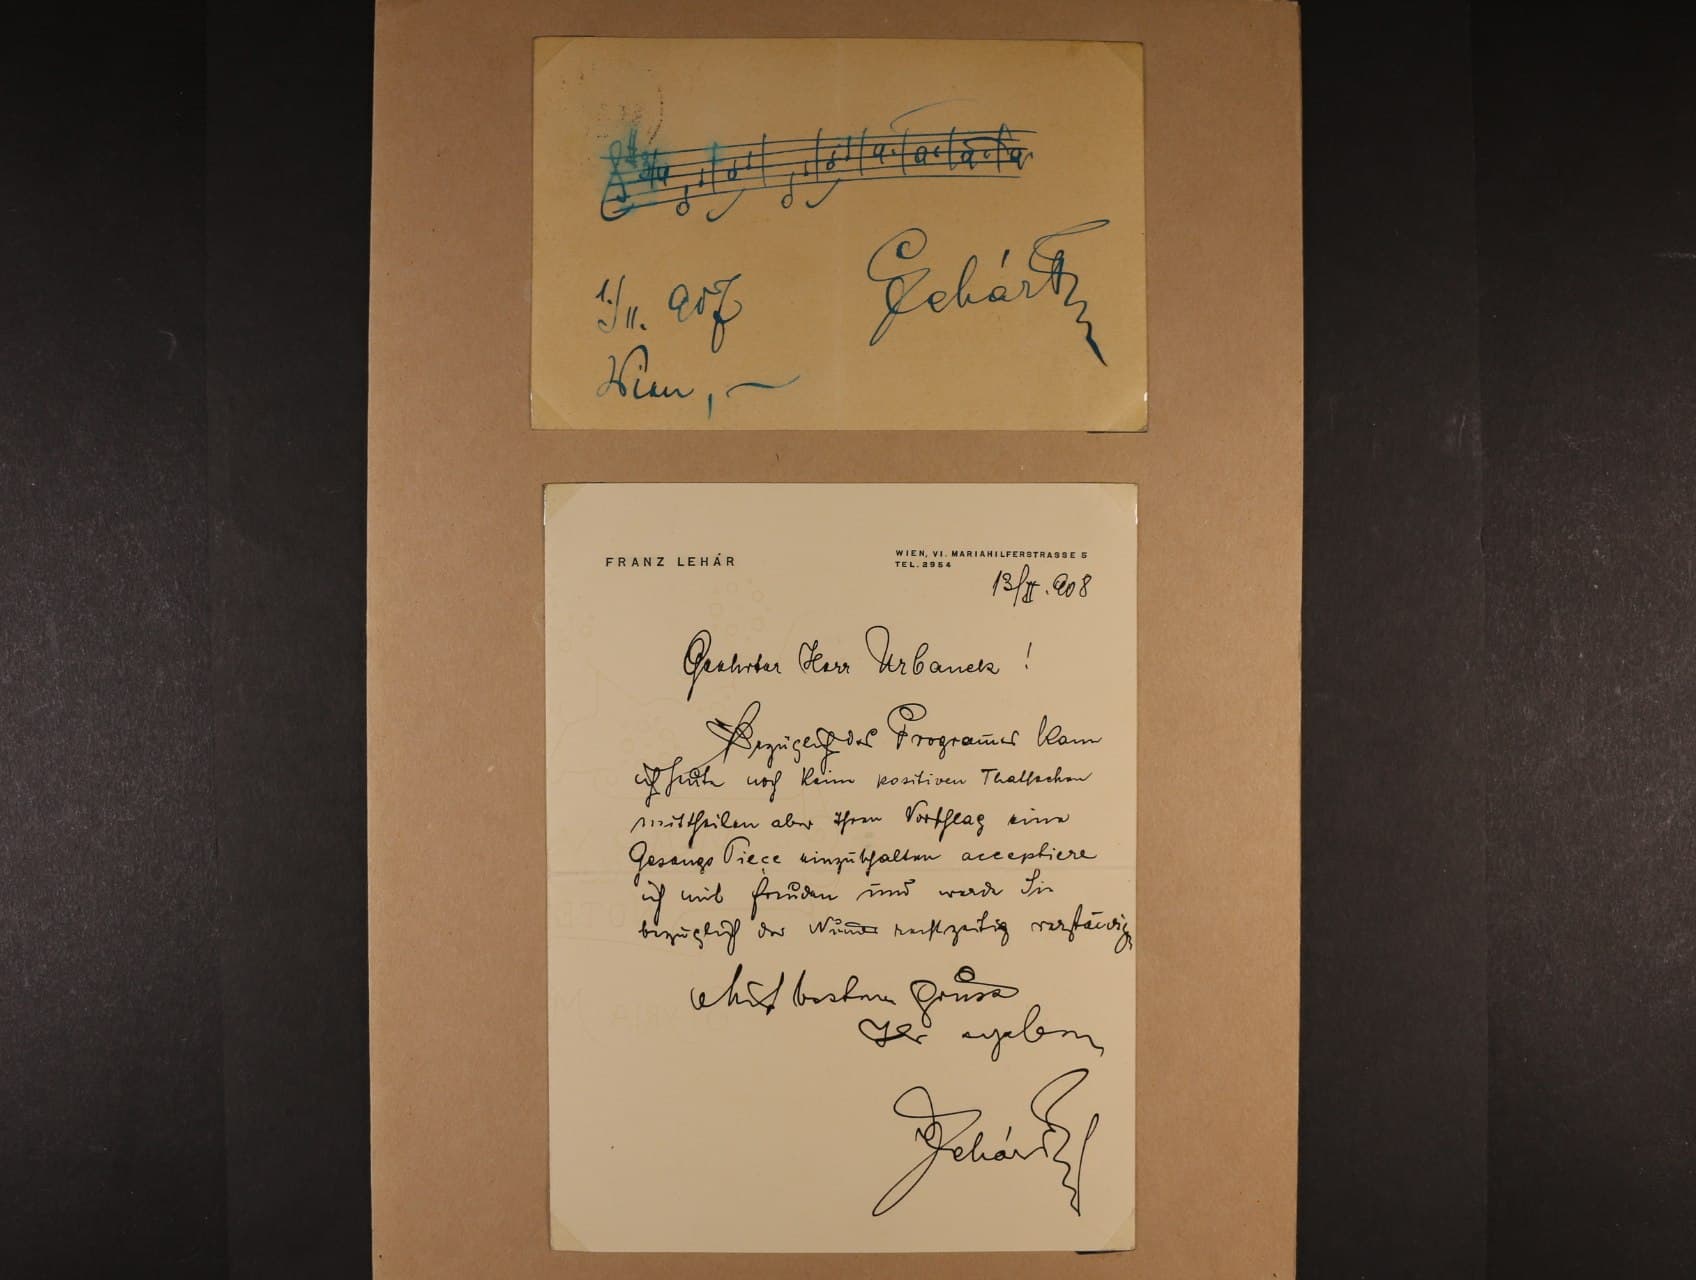 1./II. 907
Wien,
Lehár
FRANZ LEHÁR
WIEN, VI. MARIAHILFERSTRASSE 5
TEL. 2954
13/II. 908
Geehrter Herr Urbanek!
Bezüglich des Programes kann
ich heute noch keine positiven Thatsachen
mittheilen aber Ihren Vorschlag eine
Gesangs Piece einzuschalten acceptiere
ich mit Freuden und werde Sie
bezüglich der rechtzeitig verständig
Mit besten Gruss
Ihr ergebener
Lehár